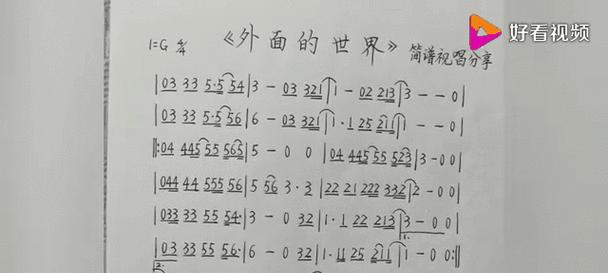 好看视频
1=G 4/4 《外面的世界》 简谱视唱分享
|03 33 5·5 54|3 - 03 321|1 - 02 213|3 - - 0|
|03 33 5·5 56|6 - 03 321|1·1 25 211|1 - - 0|
‖:04 445 55 565|5 - 0 0|04 445 55 523|3 - 0 0|
|044 44 555 56|5 56 3·3|22 21 222 332|2 - 0 0|
|033 33 55 54·|3 - 0 32|1·1 22 213|3 - 0 0|
1.
|03 33 55 56·|6 - 0 32|1·11 25 211|1 - 0 0:‖
2.